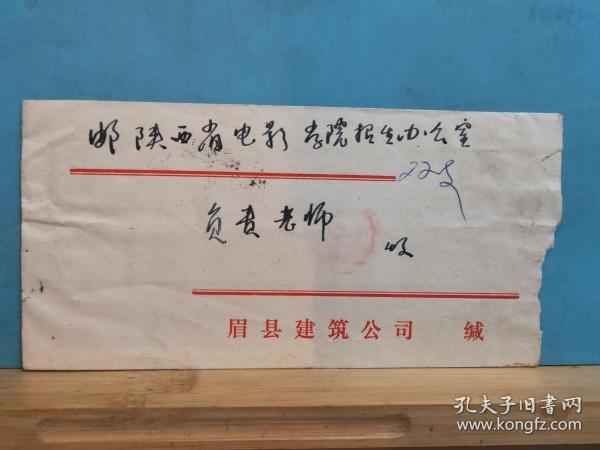 邮陕西省电影学院招生办公室
负责老师
收
眉县建筑公司 缄
孔夫子旧书网
www.kongfz.com